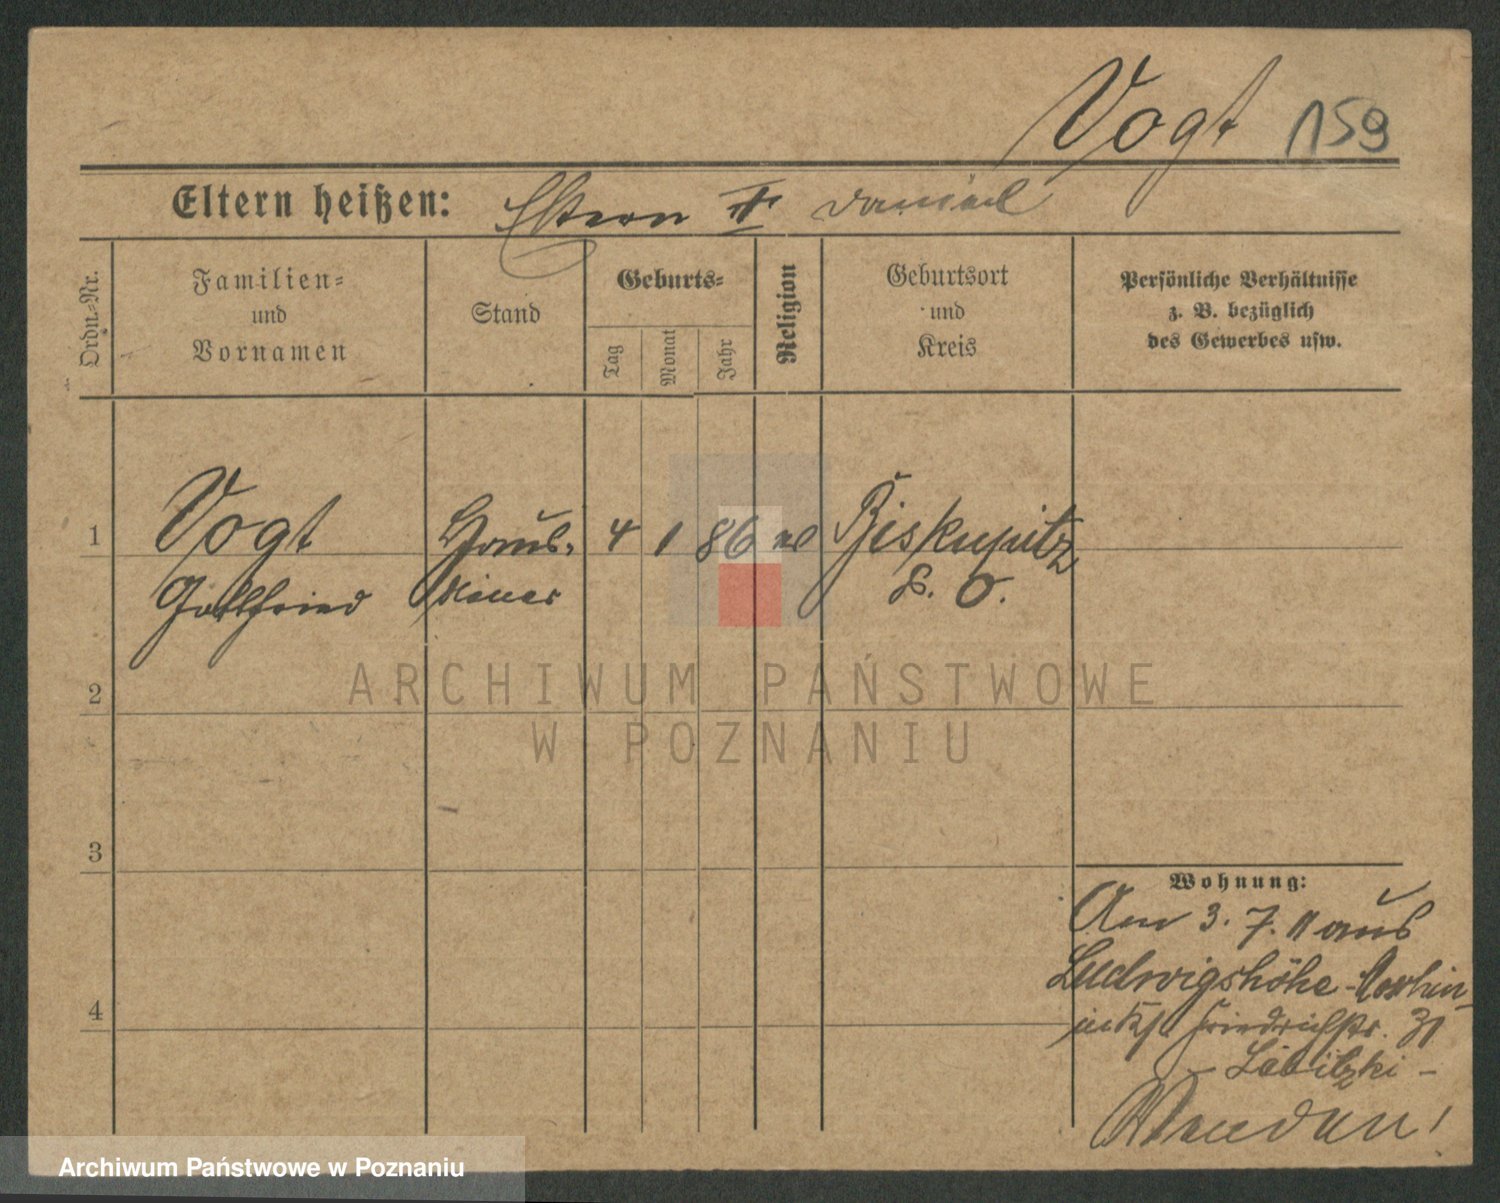 Vogt 159
Eltern heißen: Eltern † Daniel
Ordn.-Nr.
Familien-
und
Vornamen
Stand
Geburts-
Tag
Monat
Jahr
Religion
Geburtsort
und
Kreis
Persönliche Verhältnisse
z. B. bezüglich
des Gewerbes usw.
1 Vogt Haus- 4 1 86 Biskupitz
Gottfried diener P. O.
2
3
4
ARCHIWUM PAŃSTWOWE
W POZNANIU
Wohnung:
Am 3. 7. 11 aus
Ludwigshöhe
Friedrichstr. 31
- Labitzki -
Archiwum Państwowe w Poznaniu